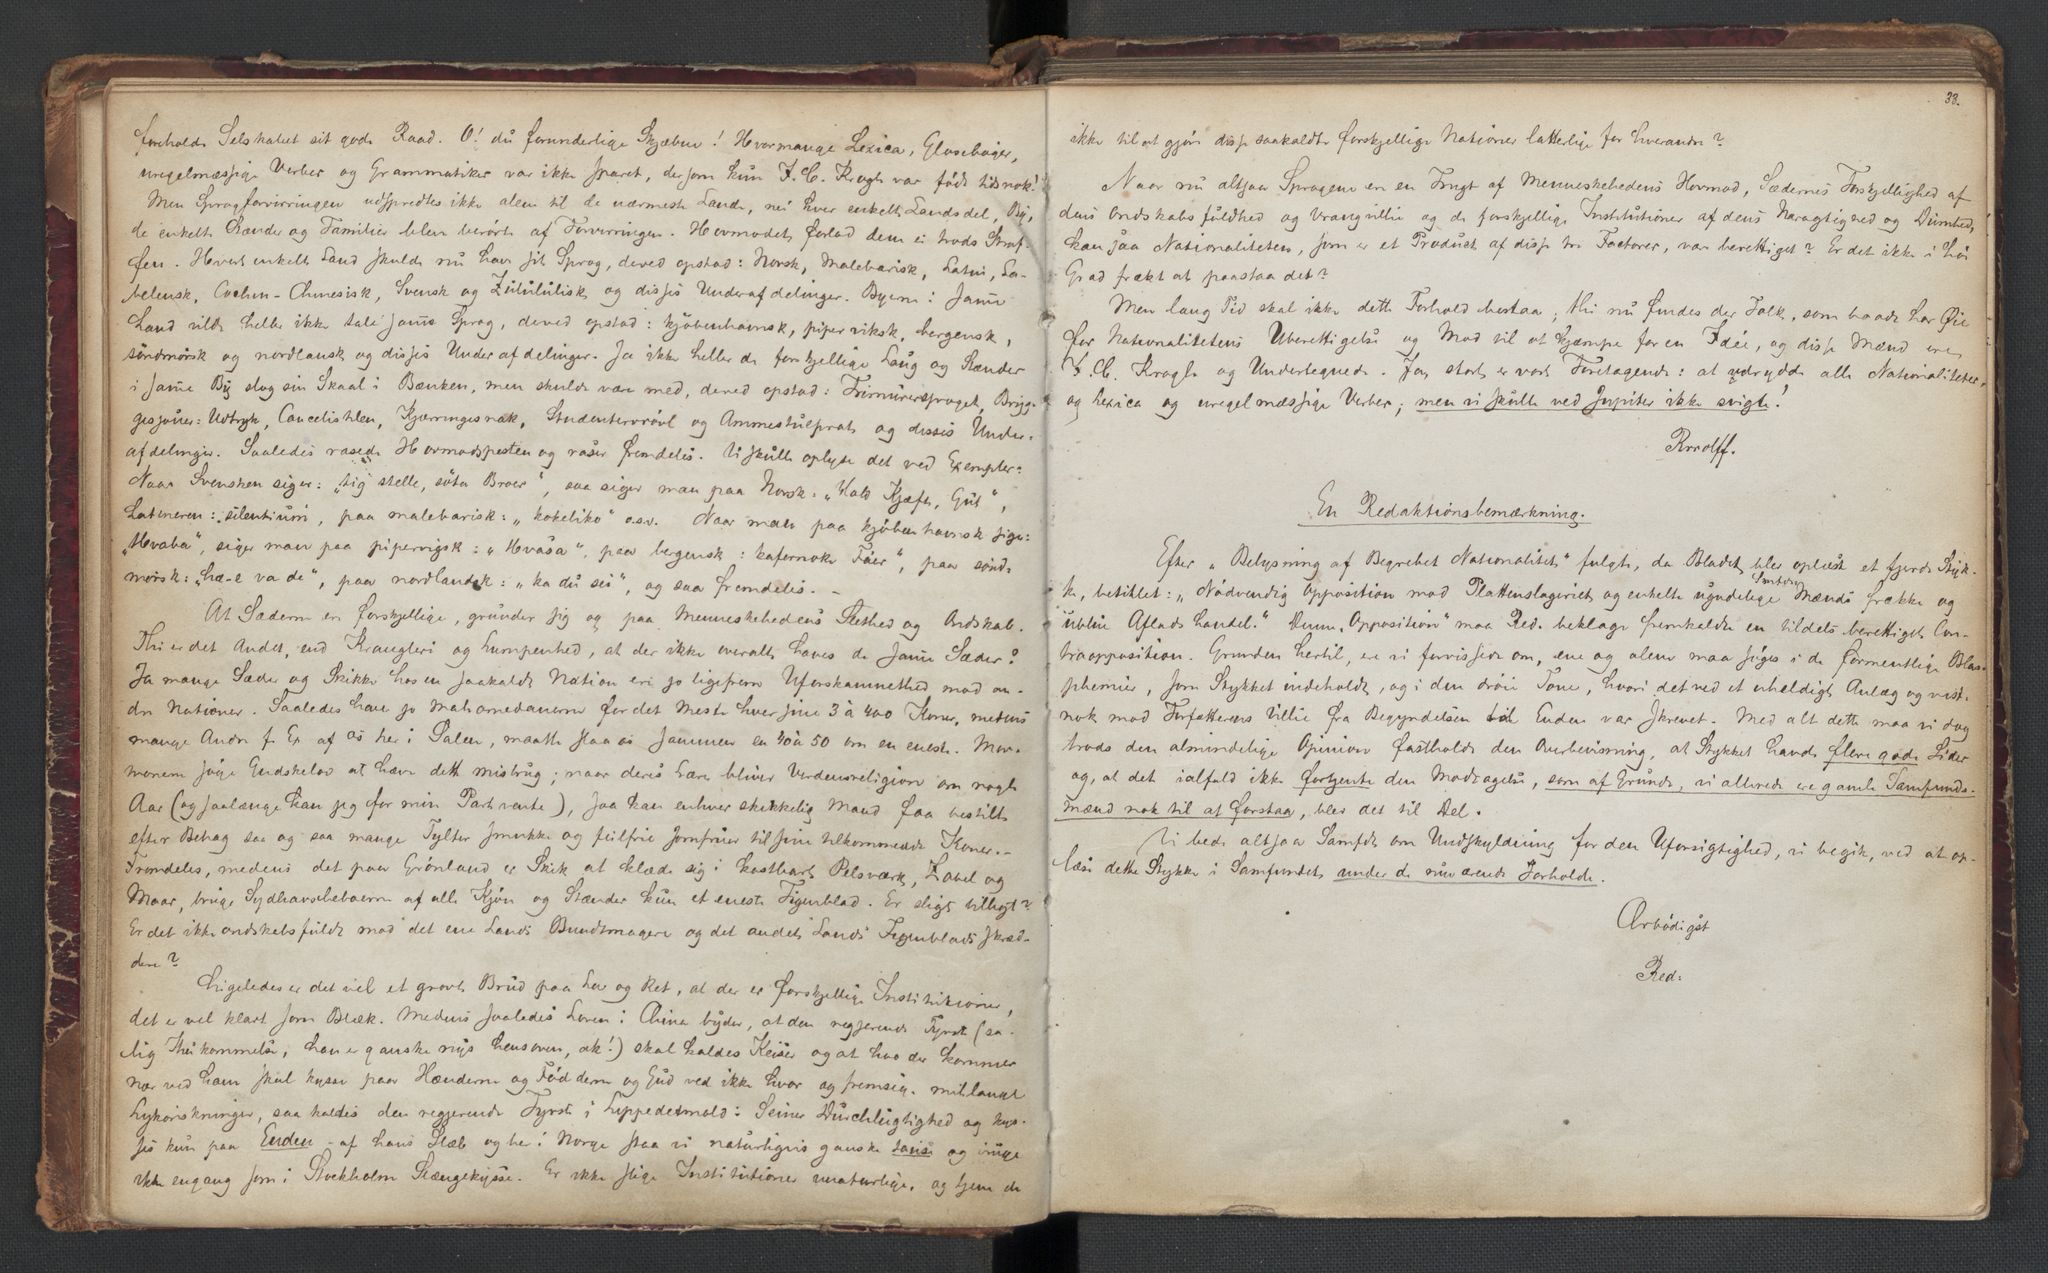 foreholdt Selskabet sit gode Raad. O! du forunderlige Skjæbne! Hvormange Lexica, Gloseboger,
uregelmæssige Verber og Grammatiker var ikke sparet, dersom kun F. C. Krogh var født tids nok!
Men Sprogforvirringen udspredtes ikke alene til de nærmeste Lande, nei hver enkelt Landsdel, By,
de enkelte Stænder og Familier blev berørte af Forvirringen. Hovmodet forlod dem ei trods Straf-
fen. Hvert enkelt Land skulde nu have sit Sprog, derved opstod: Norsk, Malebarisk, Latin, La-
belensk, Cochin-Chinesisk, Svensk og Zululúlisk og dissis Underafdelinger. Byerne i samme
Land vilde heller ikke tale samme Sprog, derved opstod: kjøbenhavnsk, piperviksk, bergensk,
søndmørsk og nordlansk og dissis Underafdelinger. Ja ikke heller de forskjellige Laug og Stænder
i samme By slog sin Skaal i Bænken, men skulde være med, derved opstod: Frimurersproget, Brygge-
gesjouer-Udtryk, Cancelistilen, Kjærringesnak, Studentervrøvl og Ammestulprat og dissis Under-
afdelinger. Saaledes rasede Hovmodspesten og raser fremdeles. Vi skulle oplyse det ved Exempler:
Naar Svensken siger: „tig stelle, söta Broer", saa siger man paa Norsk: „Hold Kjæft, Gut",
Latineren: silentium, paa malebarisk: „kokeliko" o.s.v. Naar man paa kjøbenhavnsk siger:
„Hvaba", siger man paa pipervigsk: „Hvasa", paa bergensk: kafornoke Faer", paa sønd-
mørsk: „hæ-e va de", paa nordlandsk: „ka du sei", og saa fremdeles. –
At Sæderne ere forskjellige, grunder sig og paa Menneskehedens Slethed og Ondskab.
Thi er det Andet, end Krangleri og Lumpenhed, at der ikke overalt haves de samme Sæder?
Ja mange Sæder og Skikke hos en saakaldt Nation ere jo ligefrem Uforskammethed mod an-
dre Nationer. Saaledes have jo Mahomedanerne for det Meste hver sine 3 à 400 Koner, medens
mange Andre f. Ex af os her i Salen, maatte slaa os sammen en 40 à 50 om en eneste. Mor-
monerne søge Gudskelov at hæve dette Misbrug; naar deres Lære bliver Verdensreligion om nogle
Aar (og saalænge kan jeg for min Part vente), saa kan enhver skikkelig Mand faa bestilt
efter Behag saa og saa mange Tylter smukke og feilfrie Jomfruer til sine tilkommende Koner. –
Fremdeles, medens det paa Grønland er Skik at klæde sig i kostbart Pelsværk, Zobel og
Maar, bruge Sydhavsbeboerne af alle Kjøn og Stænder kun et eneste Figenblad. Er sligt billigt?
Er det ikke ondskabsfuldt mod det ene Lands Bundtmagere og det andet Lands Figenblads skræd-
dere?
Ligeledes er det vel et grovt Brud paa Lov og Ret, at der er forskjellige Institutioner,
det er vel klart som Blæk. Medens saaledes Loven i China byder, at den regjerende Fyrste (sa-
lig Ihukommelse, han er ganske nys hensoven, ak!) skal kaldes Keiser og at hvo der kommer
nær ved ham skal kysse paa Hænderne og Fødderne og Gud ved ikke hvor og fremsige millangt
Lykønskninger, saa kaldes den regjerende Fyrste i Lippedetmold: Seiner Durchlügtighed og kys-
ses kun paa Enden – af hans Stæb og her i Norge staa vi naturligvis ganske tause og bruge
ikke engang som i Stockholm Slængekysse. Er ikke slige Institutioner unaturlige, og tjene de
33.
ikke til at gjøre disse saakaldte forskjellige Nationer latterlige for hverandre?
Naar nu altsaa Sprogene ere en Frugt af Menneskehedens Hovmod, Sædernes Forskjellighed af
dens Ondskabsfuldhed og Vrangvillie og de forskjellige Institutioner af dens Næragtighed og Dumhed,
kan saa Nationaliteten, som er et Product af disse tre Factorer, være berettiget? Er det ikke i høi
Grad frækt at paastaa det?
Men lang Tid skal ikke dette Forhold bestaa; thi nu findes der Folk, som baade har Øie
for Nationalitetens Uberettigelse og Mod til at kjæmpe for en Idée, og disse Mænd ere
F. C. Krogh og Undertegnede. Ja, stort er vort Foretagende: at udrydde alle Nationaliteter,
og Lexica og uregelmæssige Verber; men vi skulle ved Jupiter ikke svigte!
Rrrolff.
En Redaktionsbemærkning.
Efter „Belysning af Begrebet Nationalitet" fulgte, da Bladet blev oplæst et fjerde Styk-
ke, betitlet: „Nødvendig Opposition mod Plattenslageriet og enkelte ugudelige Samfdsmænds frække og
Aflads handel." Denne „Opposition" maa Red. beklage fremkaldte en tildels berettiget Con-
traopposition. Grunden hertil, ere vi forvissede om, ene og alene maa søges i de formentlige Blas-
phemier, som Stykket indeholdt, og i den drøie Tone, hvori det ved et uheldigt Anlæg og vist-
nok mod Forfatterens Villie fra Begyndelsen til Enden var skrevet. Med alt dette maa vi dog
trods den almindelige Opinion fastholde den Anerbevisning, at Stykket havde flere gode Sider
og, at det ialfald ikke fortjente den Modtagelse, som af Grunde, vi allerede ere gamle Samfunds-
mænd nok til at forstaa, blev det til Del.
Vi bede altsaa Samfdt om Undskyldning for den Uforsigtighed, vi begik, ved at op-
læse dette Stykke i Samfundet under de nuværende Forholde.
Ærbødigst
Red: